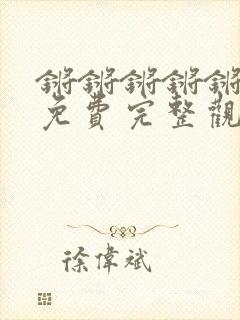 锵锵锵锵锵
免費完整觀
徐偉斌